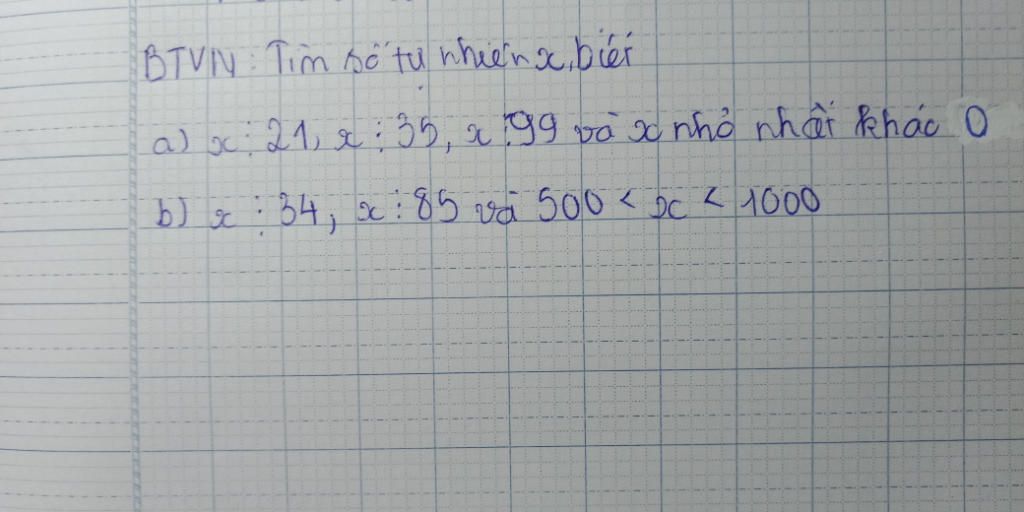 BTVN: Tìm số tự nhiên x, biết
a) x ⋮ 21, x ⋮ 35, x ⋮ 99 và x nhỏ nhất khác 0
b) x ⋮ 34, x ⋮ 85 và 500 < x < 1000